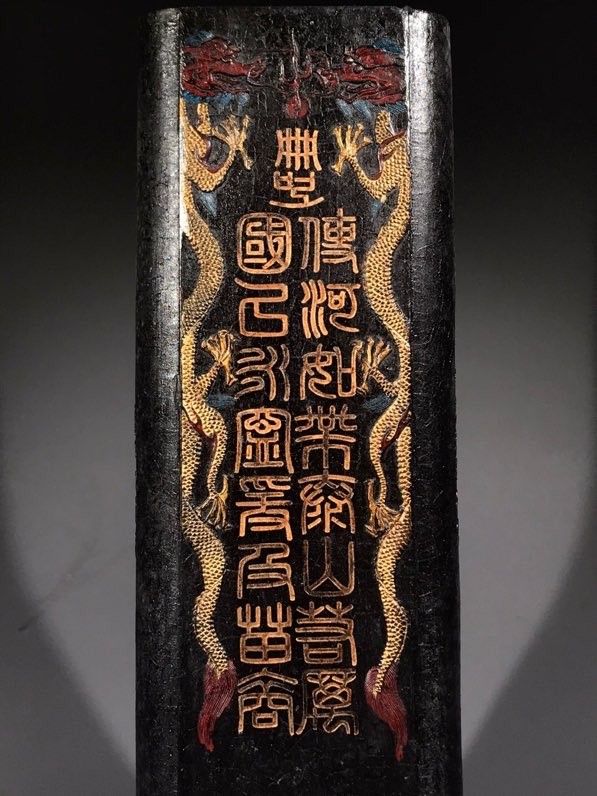 使河如帶泰山若厲
國以永寧爰及苗裔